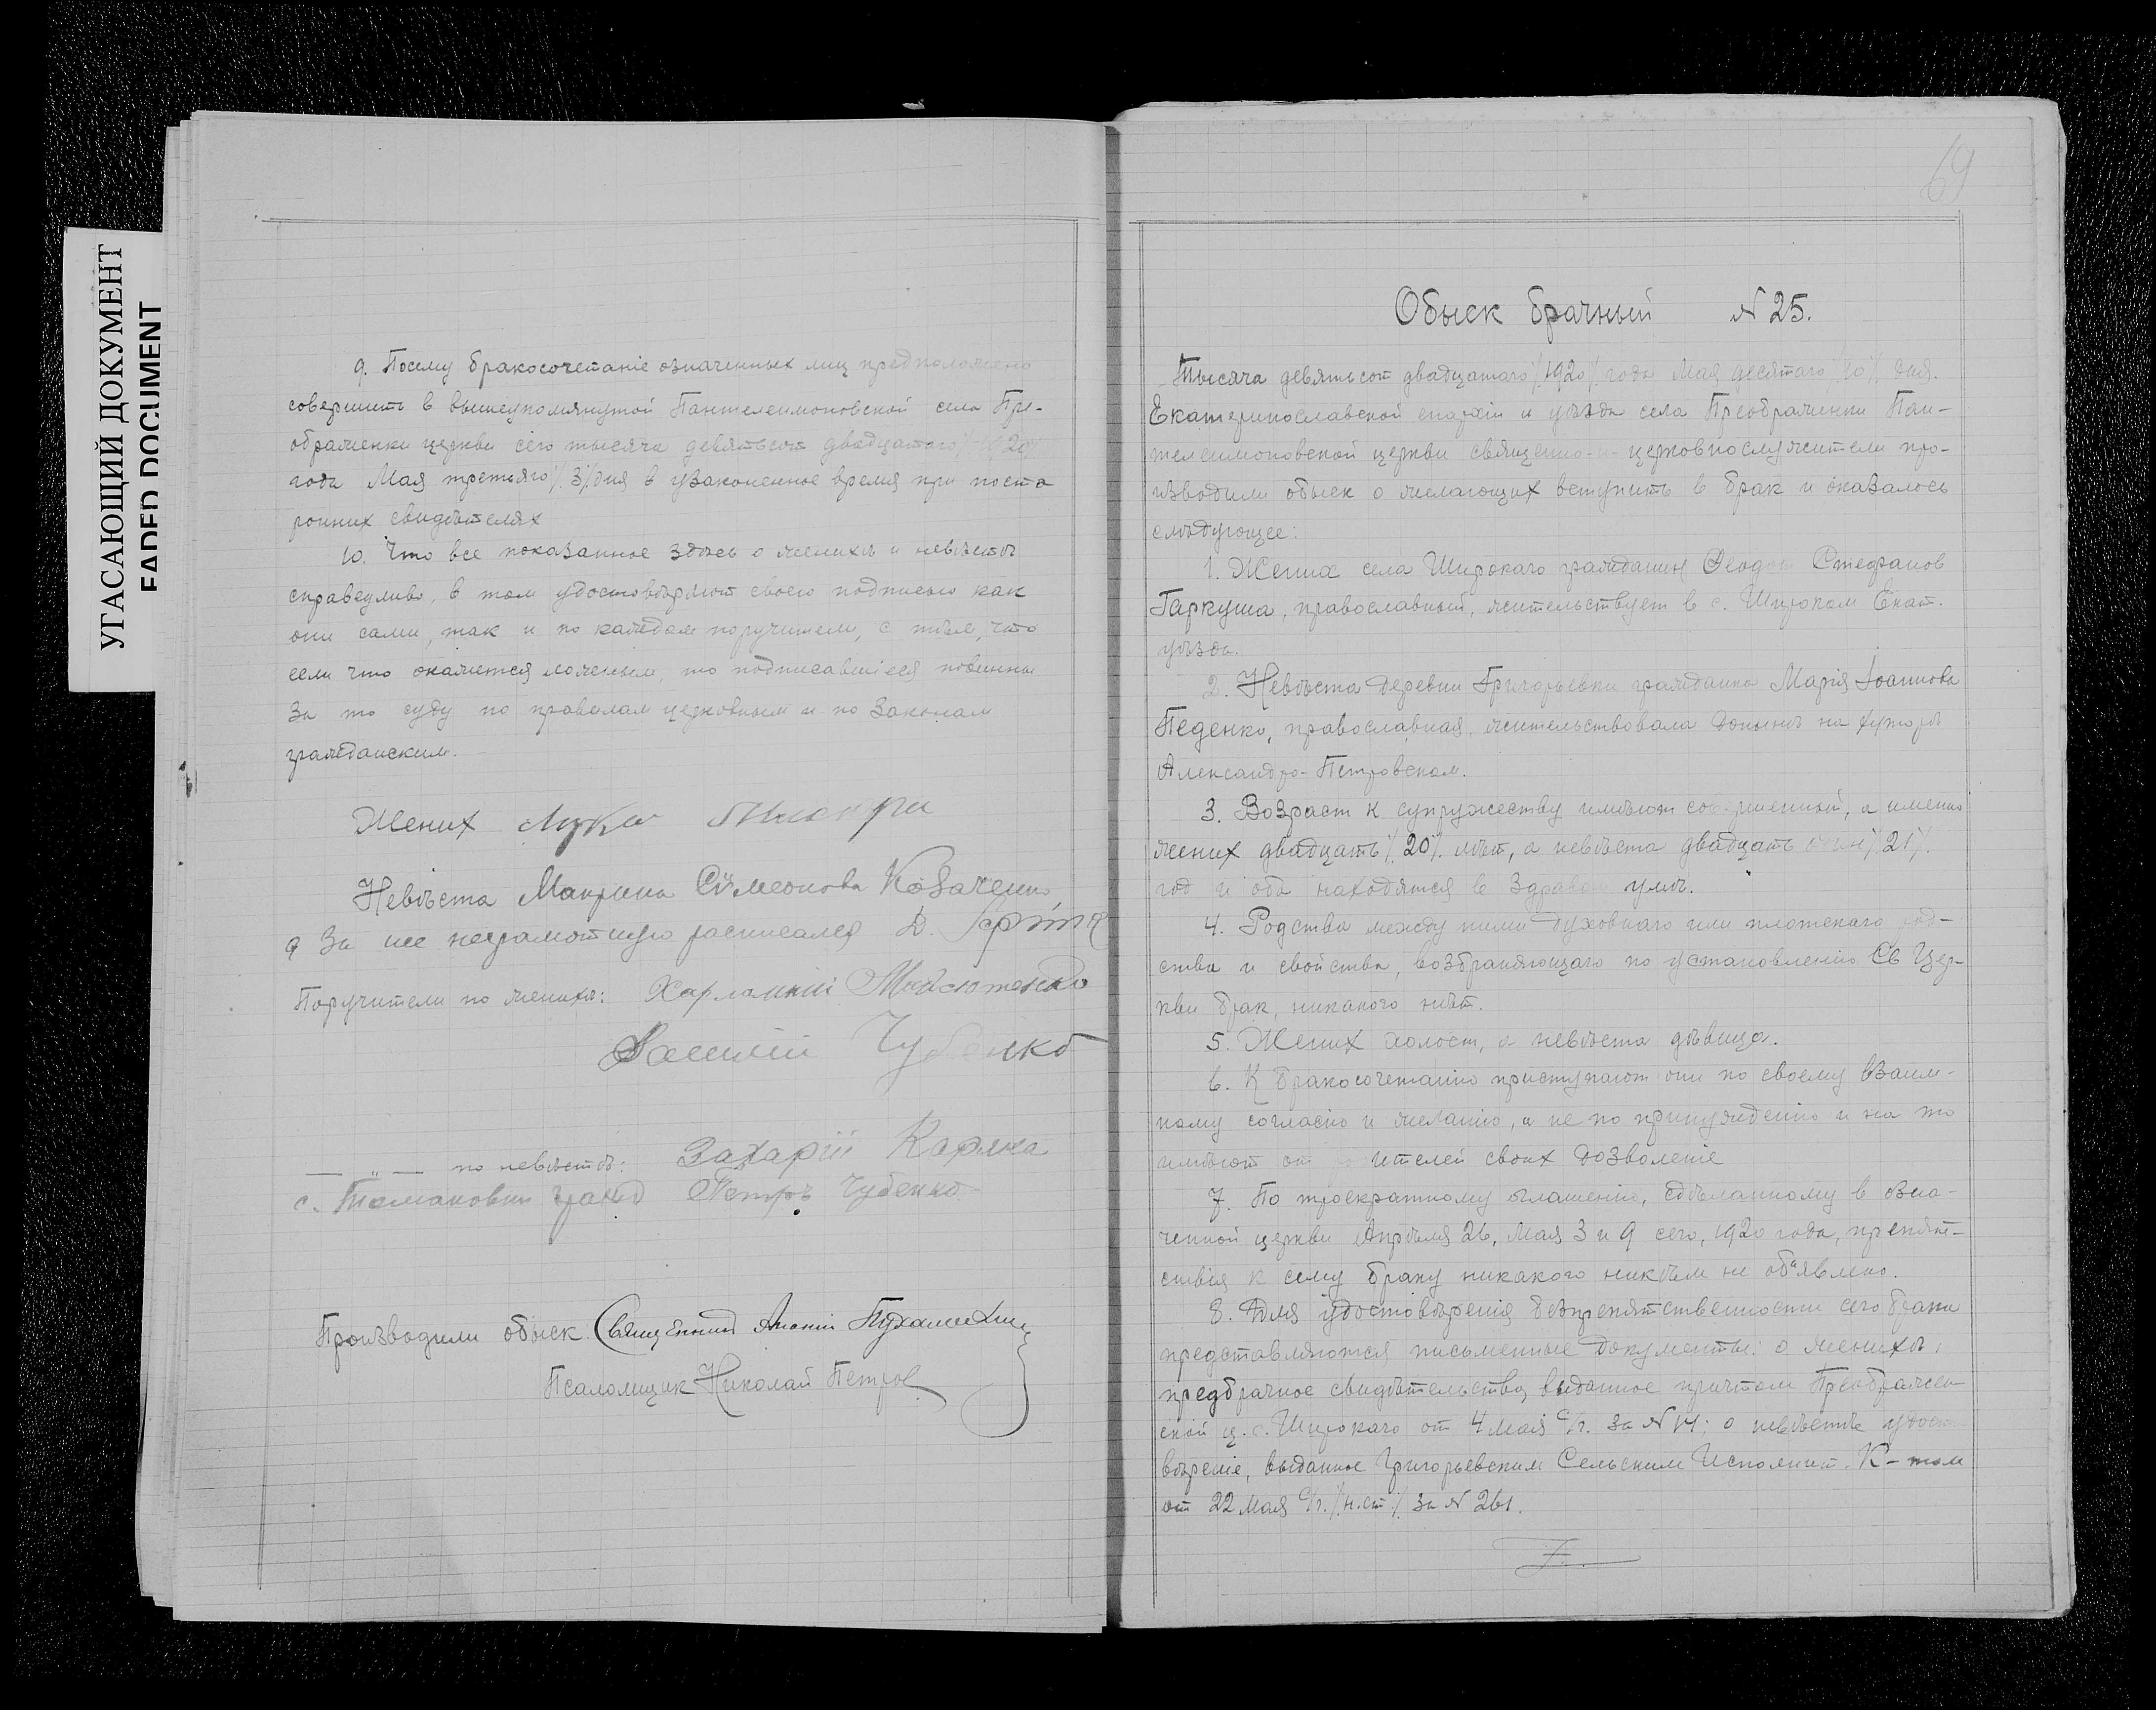 УГАСАЮЩИЙ ДОКУМЕНТ
FADED DOCUMENT
9. Посему бракосочетаніе означенных лиц предположено
совершить в вышеупомянутой Пантелеимоновской села Пре-
ображенки церкви сего тысяча девятьсот двадцатаго /1920/
года Мая третьяго /.3/. дня в узаконенное время при посто
ронних свидѣтелях
10. Что все показанное здѣсь о женихѣ и невѣстѣ
справедливо, в том удостовѣряют своею подписью как
они сами, так и по каждом поручители, с тѣм, что
если что окажется ложным, то подписавшіеся повинны
за то суду по правилам церковным и по законам
гражданским.
Жених Лука
Невѣста Макрина Сѷмеонова Козаченко
а за нее неграмотную расписался Д.
Поручители по женихѣ: Харлампій
Василий Чубенко
— „ — по невѣстѣ: Захарій Каряка
с. Томаковки гражд Петръ Чубенко
Производили обыск: Священник
Псаломщик Николай Петров
69
Обыск брачный № 25.
Тысяча девятьсот двадцатаго /.1920/. года Мая десятаго /.10/. дня.
Екатеринославской епархіи и уѣзда села Преображенки Пан-
телеимоновской церкви священно-и-церковнослужители про-
изводили обыск о желающих вступить в брак и оказалось
слѣдующее:
1. Жених села Широкаго гражданин Стефанов
Гаркуша, православный, жительствует в с. Широком Екат.
уѣзда.
2. Невѣста деревни Григорьевки гражданка Марія Іоаннова
Педенко, православная, жительствовала донынѣ на хуторѣ
Александро-Петровском.
3. Возраст к супружеству имѣют совершенный, а именно
жених двадцать /.20/. лѣт, а невѣста двадцать один /.21/.
год и оба находятся в здравом умѣ.
4. Родства между ними духовнаго или плотскаго род-
ства и свойства, возбраняющаго по установленію Св Цер-
кви брак, никакого нѣт.
5. Жених холост, а невѣста дѣвица.
6. К бракосочетанію приступают они по своему взаим-
ному согласію и желанію, а не по принужденію и на то
имѣют от родителей своих дозволеніе
7. По троекратному оглашенію, сдѣланному в озна-
ченной церкви Апрѣля 26, Мая 3 и 9 сего, 1920 года, препят-
ствія к сему браку никакого никѣм не объявлено.
8. Для удостовѣренія безпрепятственности сего брака
представляются письменные документы: о женихѣ:
предбрачное свидѣтельство, выданное причтом Преображен-
ской ц. с. Широкаго от 4 мая с/г. за № 14; о невѣстѣ удосто
вѣреніе, выданное Григорьевским Сельским Исполнит. К-том
от 22 мая с/г. /.н.ст./. за № 261.